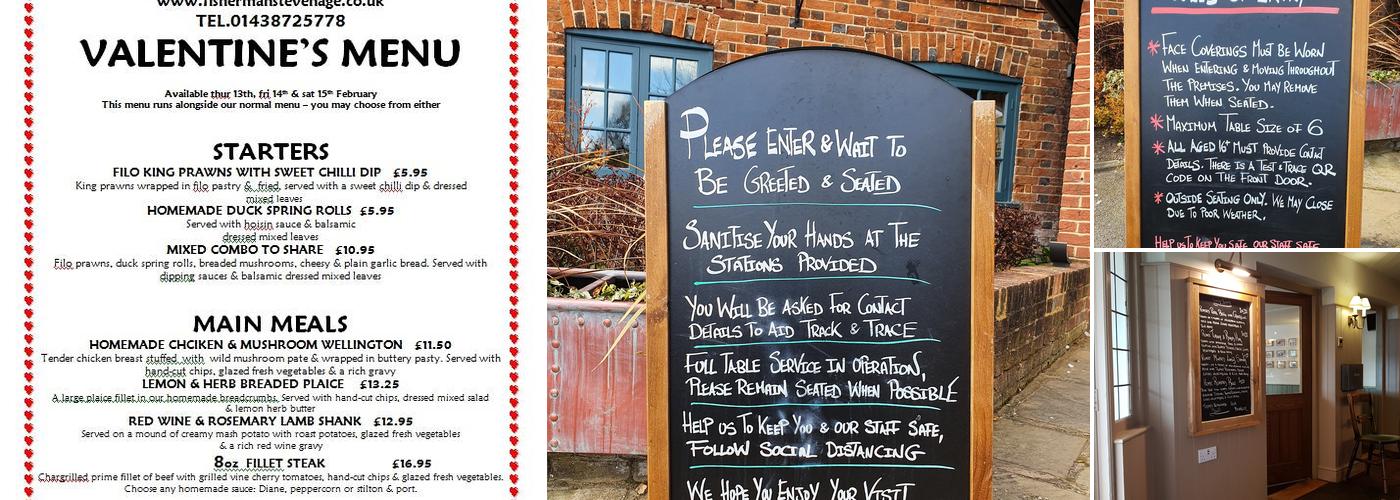 www.fishermanstevenage.co.uk
TEL.01438725778
VALENTINE'S MENU
Available thur 13th, fri 14th & sat 15th February
This menu runs alongside our normal menu – you may choose from either
STARTERS
FILO KING PRAWNS WITH SWEET CHILLI DIP £5.95
King prawns wrapped in filo pastry & fried, served with a sweet chilli dip & dressed
mixed leaves
HOMEMADE DUCK SPRING ROLLS £5.95
Served with hoisin sauce & balsamic
dressed mixed leaves
MIXED COMBO TO SHARE £10.95
Filo prawns, duck spring rolls, breaded mushrooms, cheesy & plain garlic bread. Served with
dipping sauces & balsamic dressed mixed leaves
MAIN MEALS
HOMEMADE CHCIKEN & MUSHROOM WELLINGTON £11.50
Tender chicken breast stuffed, with wild mushroom pate & wrapped in buttery pasty. Served with
hand-cut chips, glazed fresh vegetables & a rich gravy
LEMON & HERB BREADED PLAICE £13.25
A large plaice fillet in our homemade breadcrumbs. Served with hand-cut chips, dressed mixed salad
& lemon herb butter
RED WINE & ROSEMARY LAMB SHANK £12.95
Served on a mound of creamy mash potato with roast potatoes, glazed fresh vegetables
& a rich red wine gravy
8oz FILLET STEAK £16.95
Chargrilled prime fillet of beef with grilled vine cherry tomatoes, hand-cut chips & glazed fresh vegetables.
Choose any homemade sauce: Diane, peppercorn or stilton & port.
PLEASE ENTER & WAIT TO
BE GREETED & SEATED
SANITISE YOUR HANDS AT THE
STATIONS PROVIDED
YOU WILL BE ASKED FOR CONTACT
DETAILS TO AID TRACK & TRACE
FULL TABLE SERVICE IN OPERATION,
PLEASE REMAIN SEATED WHEN POSSIBLE
HELP US TO KEEP YOU & OUR STAFF SAFE,
FOLLOW SOCIAL DISTANCING
WE HOPE YOU ENJOY YOUR VISIT
* FACE COVERINGS MUST BE WORN
WHEN ENTERING & MOVING THROUGHOUT
THE PREMISES. YOU MAY REMOVE
THEM WHEN SEATED.
* MAXIMUM TABLE SIZE OF 6
* ALL AGED 16+ MUST PROVIDE CONTACT
DETAILS. THERE IS A TEST & TRACE QR
CODE ON THE FRONT DOOR.
* OUTSIDE SEATING ONLY. WE MAY CLOSE
DUE TO POOR WEATHER.
HELP US TO KEEP YOU SAFE OUR STAFF SAFE